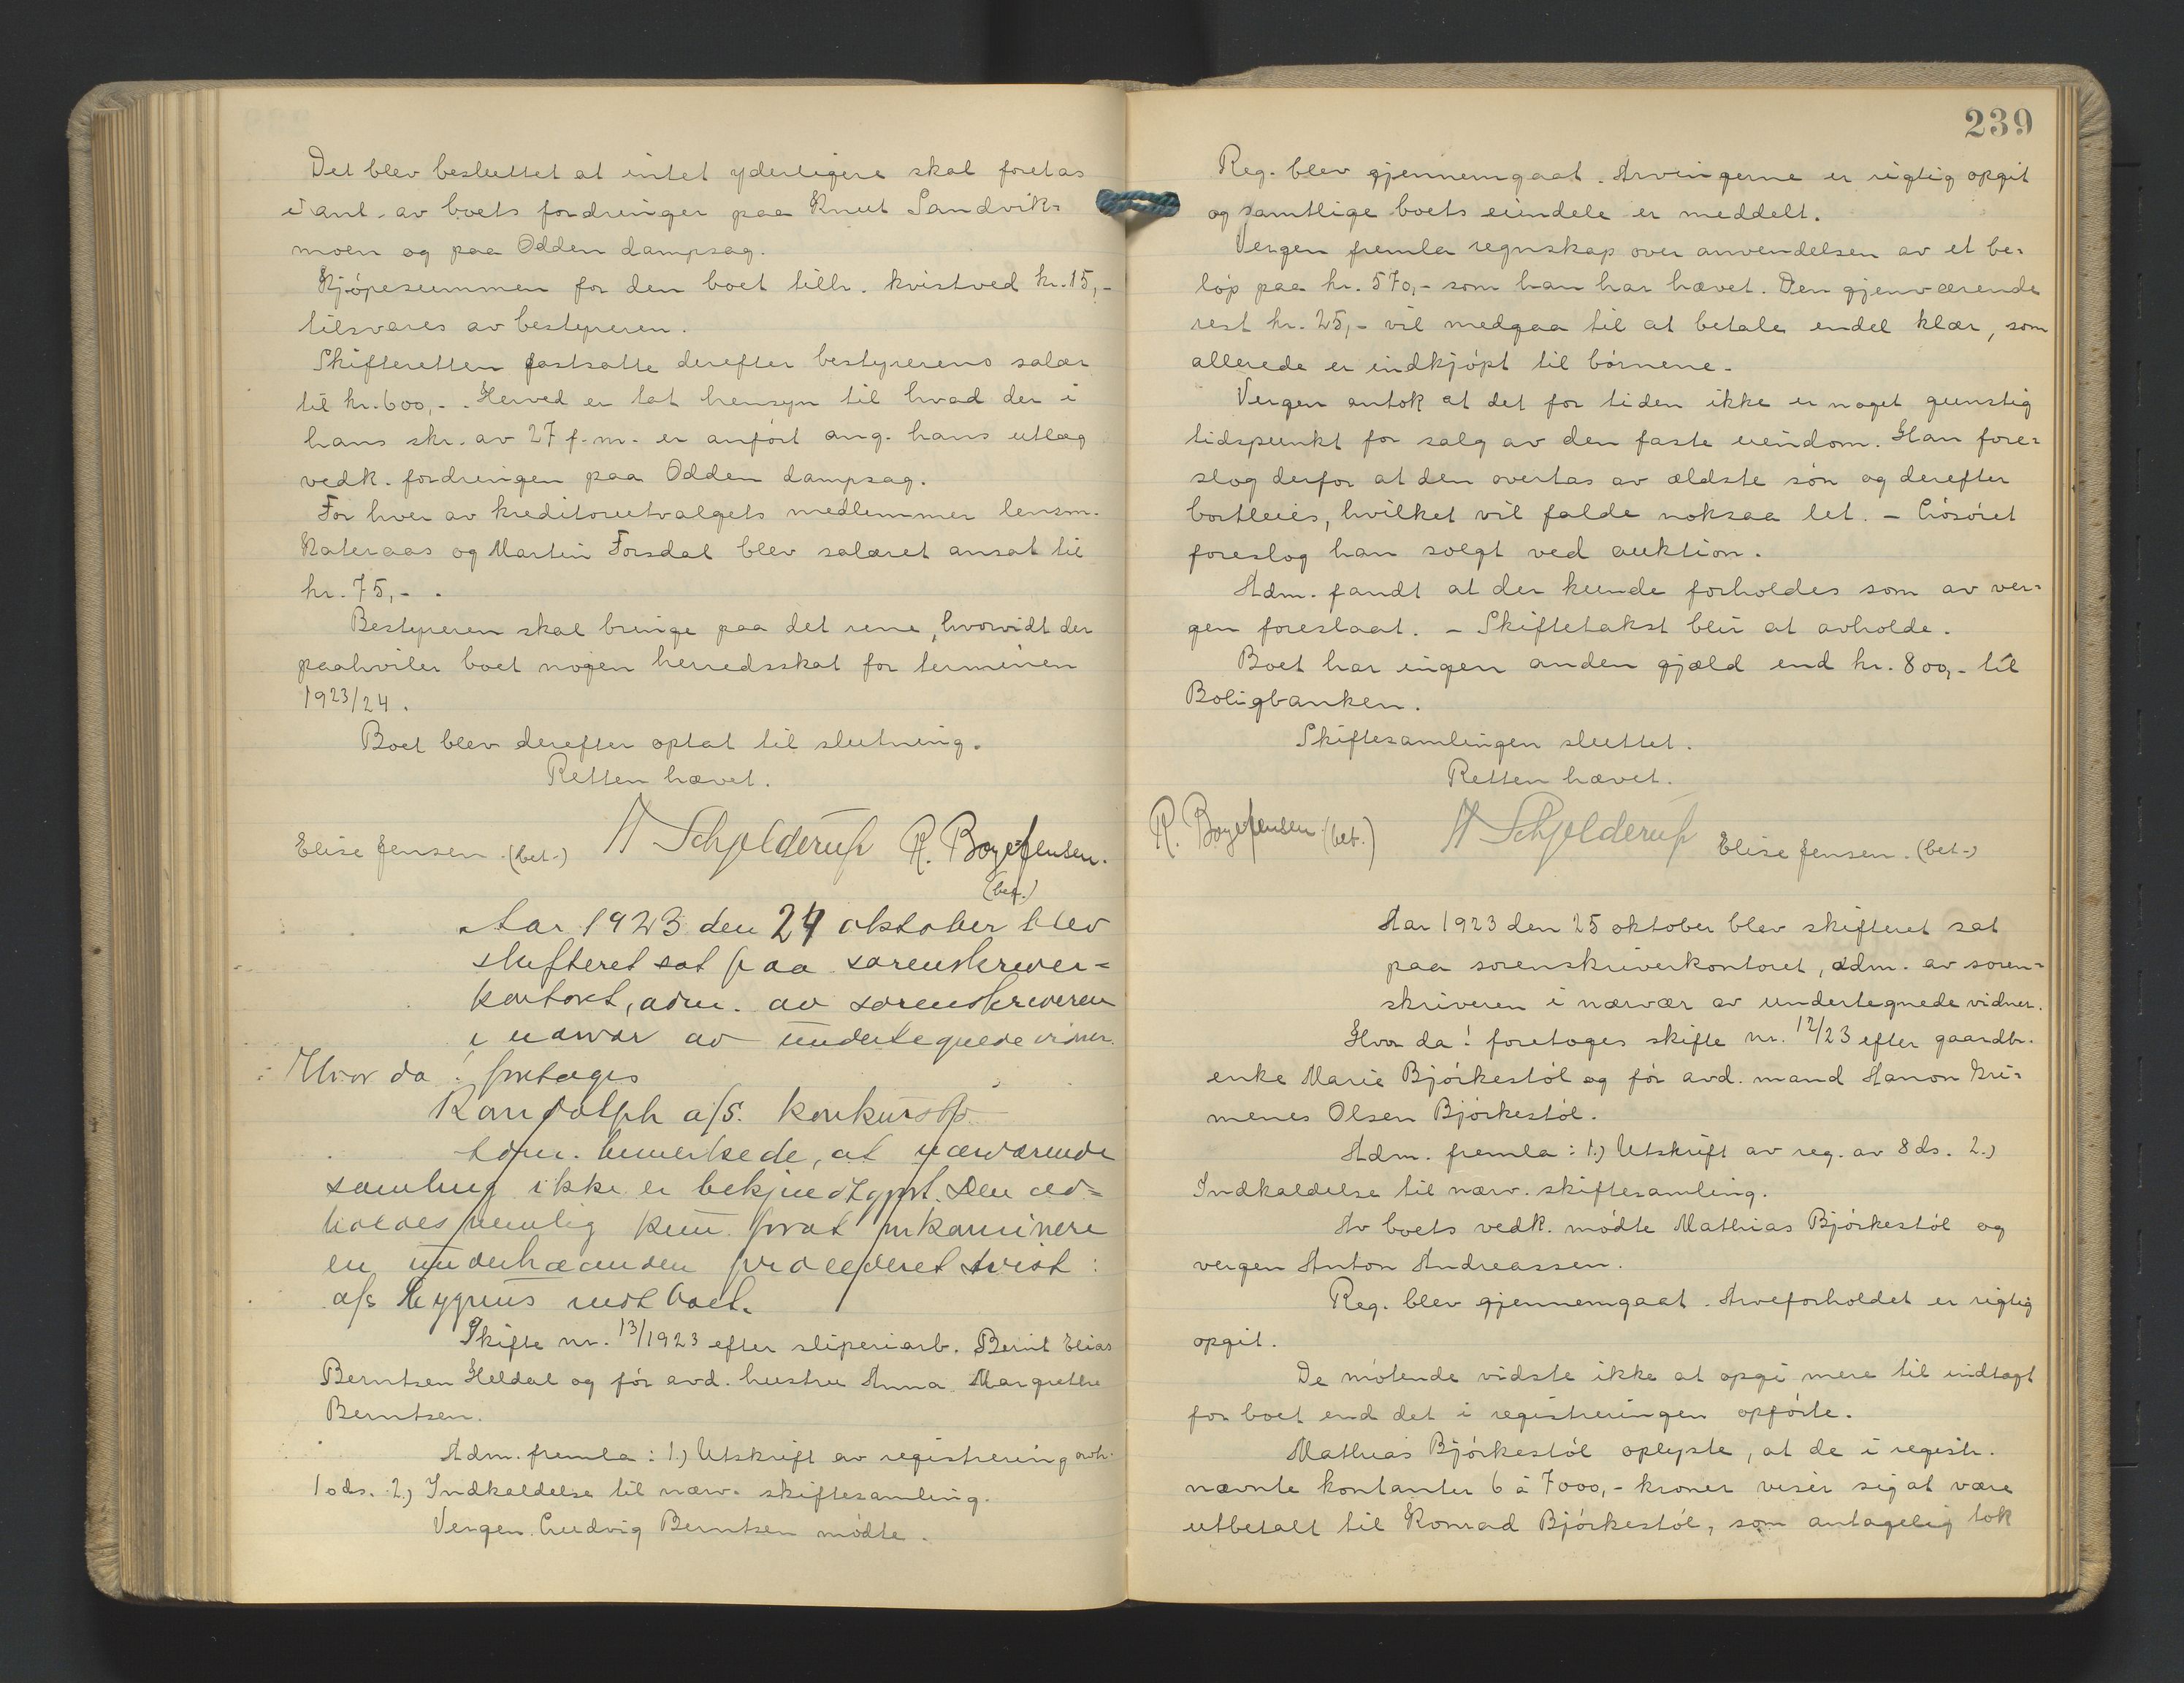 Det blev besluttet at intet yderligere skal foretas
i anl. av boets fordringer paa Knut Sandvik-
moen og paa Odden dampsag.
Kjøpesummen for den boet tilh. kvistved kr. 15,-
tilsvares av bestyreren.
Skifteretten fastsatte derefter bestyrerens salær
til kr. 600,-. Herved er tat hensyn til hvad der i
hans skr. av 27 f.m. er anført ang. hans utlæg
vedk. fordringen paa Odden dampsag.
For hver av kreditorutvalgets medlemmer lensm.
Kateraas og Martin Forsdal blev salæret ansat til
kr. 75,-.
Bestyreren skal bringe paa det rene, hvorvidt der
paahviler boet nogen herredsskat for terminen
1923/24.
Boet blev derefter optat til slutning.
Retten hævet.
Elise Jensen (bet.) H Schjelderup R. Boye Jensen.
(bet.)
Aar 1923 den 24 oktober blev
skifteret sat paa sorenskriver-
kontoret, adm. av sorenskriveren
i nærvær av undertegnede vidner.
Hvor da: foretoges
Randolph a/s. konkursbo
Adm. bemerkede, at nærværende
samling ikke er bekjendtgjort. Den av-
holdes nemlig kun for at
en underhaanden procederet tvist:
a/s Hygnus mot boet.
Skifte nr. 13/1923 efter sliperiarb. Bernt Elias
Berntsen Heldal og før avd. hustru Anna Margrethe
Berntsen.
Adm. fremla: 1.) Utskrift av registrering avh.
10 ds. 2.) Indkaldelse til nærv. skiftesamling.
Vergen Ludvig Berntsen mødte.
239
Reg. blev gjennemgaat. Arvingerne er rigtig opgit
og samtlige boets eiendele er meddelt.
Vergen fremla regnskap over anvendelsen av et be-
løp paa kr. 570,- som han har hævet. Den gjenværende
rest kr. 25,- vil medgaa til at betale endel klær, som
allerede er indkjøpt til børnene.
Vergen antok at det for tiden ikke er noget gunstig
tidspunkt for salg av den faste eiendom. Han fore-
slog derfor at den overtas av ældste søn og derefter
bortleies, hvilket vil falde noksaa let. - Løsøret
foreslog han solgt ved auktion.
Adm. fandt at der kunde forholdes som av ver-
gen foreslaat. - Skiftetakst blir at avholde.
Boet har ingen anden gjæld end kr. 800,- til
Boligbanken.
Skiftesamlingen sluttet.
Retten hævet.
R. Boye Jensen (bet.) H Schjelderup Elise Jensen. (bet.)
Aar 1923 den 25 oktober blev skifteret sat
paa sorenskriverkontoret, adm. av soren-
skriveren i nærvær av undertegnede vidner.
Hvor da! foretoges skifte nr. 12/23 efter gaardbr.
enke Marie Bjørkestøl og før avd. mand Hanon Gri-
menes Olsen Bjørkestøl.
Adm. fremla: 1.) Utskrift av reg. av 8 ds. 2.)
Indkaldelse til nærv. skiftesamling.
Av boets vedk. mødte Mathias Bjørkestøl og
vergen Anton Andreassen.
Reg. blev gjennemgaat. Arveforholdet er rigtig
opgit.
De møtende vidste ikke at opgi mere til indtægt
for boet end det i registreringen opførte.
Mathias Bjørkestøl oplyste, at de i registr.
nævnte kontanter 6 à 7000,- kroner viser sig at være
utbetalt til Konrad Bjørkestøl, som antagelig tok